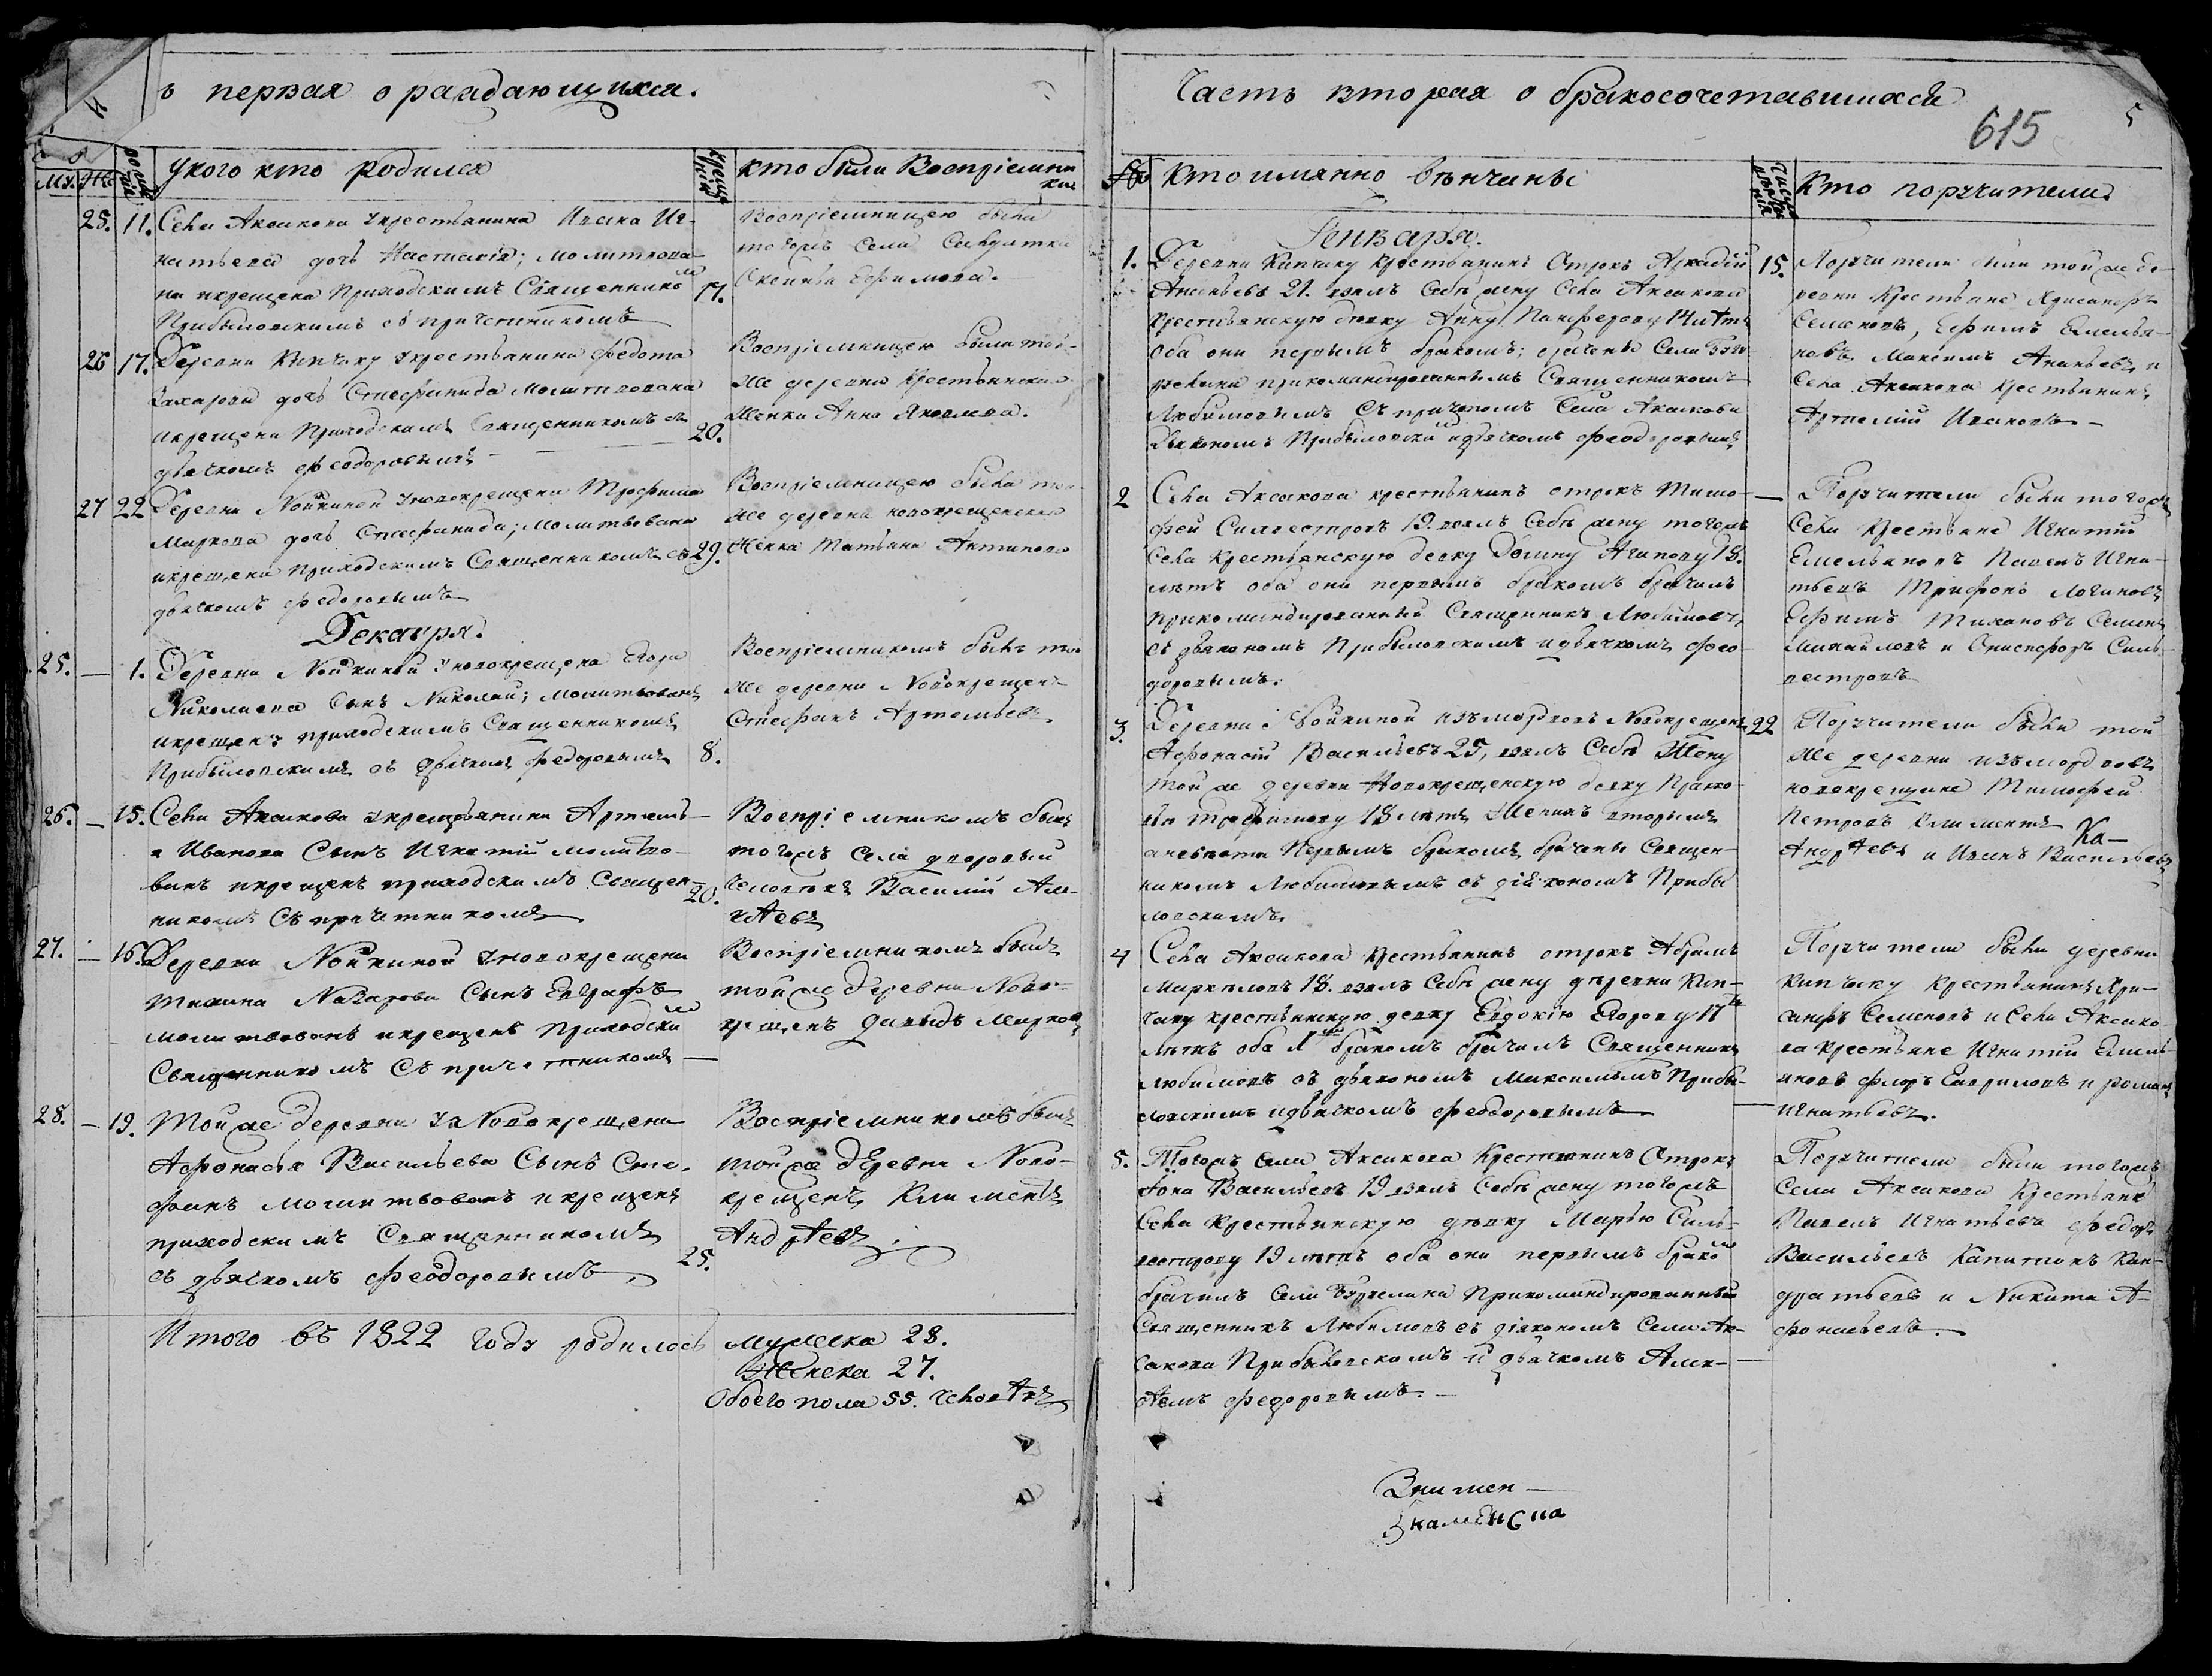 ь первая о раждающихся.
у кого кто родился
кто были Воспріемни
ки
Му. Же
25. 11. Села Аксакова укрестьянина Исака Иг-
натьева дочь Настасія; молитвова-
на икрещена Приходскимъ Священником
Прибыловскимъ съ причетникомъ
17.
Воспріемницею была
тогожъ Села
Аксинья Ефимова.
26 17. Деревни Кипчаку укрестьянина Федота
Захарова дочь Стефанида Молитвована
икрещена Приходскимъ Священникомъ съ
дьячкомъ Феодоровымъ
20.
Воспріемницею была той-
же деревни Крестьянская
Женка Анна Яковлева.
27 22 Деревни Нойкиной уновокрещена Трофима
Маркова дочь Стефанида; молитвована
икрещена приходскимъ Священникомъ съ
дьячкомъ Федоровымъ
29.
Воспріемницею была той
же деревни новокрещенская
Женка Татьяна Антипова
Декабря.
25. — 1. Деревни Нойкиной уновокрещена Егора
Николаева Сынъ Николай; молитвованъ
икрещенъ приходскимъ Священникомъ
Прибыловскимъ съ дьячкомъ Федоровымъ
8.
Воспріемникомъ былъ той
же деревни Новокрещенъ
Стефанъ Артемьевъ
26. — 15. Села Аксакова укрестьянина Артемь-
я Иванова Сынъ Игнатій молитво-
ванъ икрещенъ приходскимъ Священ-
никомъ Съ причетникомъ
20.
Воспріемникомъ былъ
тогожъ Села дворовый
человѣкъ Василій
27. — 16. Деревни Нойкиной уновокрещена
Тихана Назарова Сынъ Евграфъ
молитвованъ икрещенъ Приходским
Священникомъ Съ причетникомъ —
Воспріемникомъ былъ
тойже деревни Ново-
крещенъ Давыдъ Марков
28. — 19. Тойже деревни уНовокрещена
Афонасья Васильева Сынъ Сте-
фанъ молитвованъ икрещенъ
приходскимъ Священникомъ
съ дьячкомъ Феодоровымъ
25.
Воспріемникомъ былъ
тойже деревни Ново-
крещенъ Климентъ
Андрѣевъ.
Итого въ 1822 году родилось
мужеска 28.
Женска 27.
Обоего пола 55. человѣкъ
Часть вторая о бракосочетавшихся
615
5
№ Кто имянно вѣнчаны
Кто поручители
Генваря.
1. Деревни Кипчаку крестьянинъ Отрокъ Аркадій
Ананьевъ 21. взялъ Себѣ жену Села Аксакова
Крестьянскую девку Анну Панферову
Оба они первымъ бракомъ; браченъ Села
прикомандированнымъ Священникомъ
Любимовымъ Съ причетомъ Села Аксакова
Дьякономъ Прибыловским идьячкомъ Феодоровымъ
15. Поручители были тойже де-
ревни Крестьяне Хрисанфъ
Семеновъ, Ефимъ Емелья-
новъ Максимъ Ананьевъ и
Села Аксакова крестьянинъ
Артемій Ивановъ —
2 Села Аксакова крестьянинъ отрокъ Тимо-
фей Силвестровъ 19. взялъ Себѣ жену тогожъ
Села Крестьянскую девку Домну Агапову 18.
лѣтъ оба они первымъ бракомъ брачилъ
прикомандированный Священникъ Любимовъ
съ дьякономъ Прибыловскимъ идьячкомъ Фео-
доровымъ.
— Поручители были тогожъ
Села Крестьяне Игнатій
Емельяновъ Павелъ Игна-
тьевъ Трифонъ Логиновъ
Ефимъ Тихановъ Семенъ
Михайловъ и Онисифоръ Силь-
вестровъ
3. Деревни Нойкиной изъ мордовъ Новокрещенъ
Афонасій Васильевъ 25, взялъ Себѣ Жену
той же деревни Новокрещенскую девку Праско-
вью Трофимову 18 лѣтъ Женихъ вторымъ
аневѣста Первымъ бракомъ, брачены Священ-
никомъ Любимовымъ съ діякономъ Прибы-
ловскимъ.
22 Поручители были той
же деревни изъ мордовъ
новокрещине Тимофей
Петровъ Климентъ
Андрѣевъ и Иванъ Васильевъ
4 Села Аксакова Крестьянинъ отрокъ Абрамъ
Маркеловъ 18. взялъ Себѣ жену деревни Кип-
чаку крестьянскую девку Евдокію Егорову 17
лѣтъ оба 1 бракомъ брачилъ Священникъ
Любимовъ съ дьякономъ Максимомъ Прибы-
ловскимъ идьячкомъ Феодоровымъ
— Поручители были деревни
Кипчаку Крестьянинъ Хри-
санфъ Семеновъ и Села Аксако-
ва крестьяне Игнатій Емель-
яновъ Флоръ Гавриловъ и Романъ
Игнатьевъ.
5. Тогожъ села Аксакова Крестьянинъ Отрокъ
Іона Васильевъ 19 взялъ Себѣ жену тогожъ
Села Крестьянскую дѣвку Марью Силь-
вестрову 19 лѣтъ оба они первымъ браком
брачилъ Села Прикомандированный
Священникъ Любимовъ съ діякономъ Села Ак-
сакова Прибыловскимъ и дьячкомъ Алек-
сѣемъ Федоровымъ. —
— Поручители были тогожъ
Села Аксакова Крестьяне
Павелъ Игнатьевъ Федоръ
Васильевъ Капитонъ Кан-
дратьевъ и Никита А-
фонасьевъ.